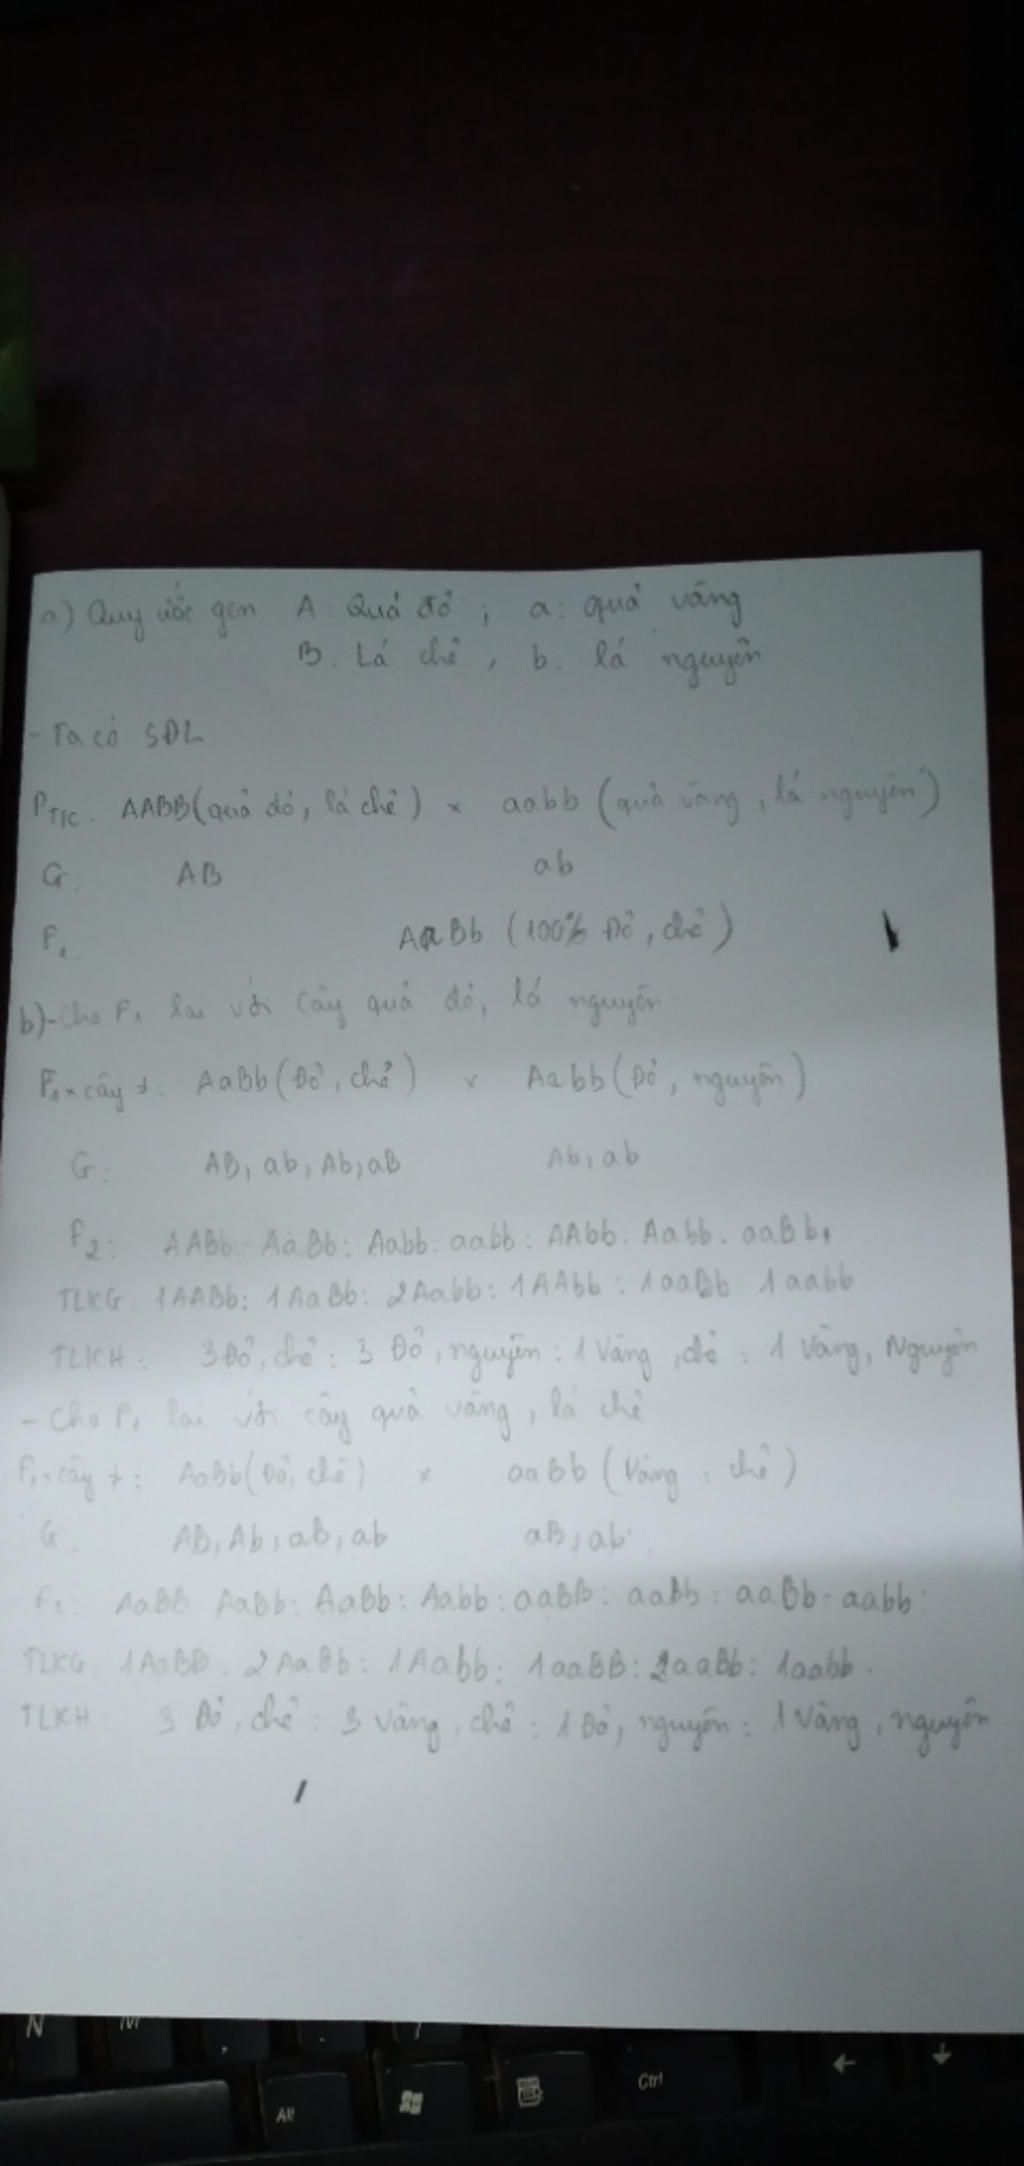 a) Quy ước gen A: Quả đỏ ; a: quả vàng
B: Lá chẻ , b: lá nguyên
- Ta có SĐL
PT/C: AABB (quả đỏ, lá chẻ) x aabb (quả vàng, lá nguyên)
G: AB ab
F1: AaBb (100% Đỏ, chẻ)
b) - Cho F1 lai với cây quả đỏ, lá nguyên
F1 x cây ≠: AaBb (Đỏ, chẻ) x Aabb (Đỏ, nguyên)
G: AB, ab, Ab, aB Ab, ab
F2: AABb: AaBb: Aabb: aabb: AAbb: Aabb: aaBb,
TLKG: 1AABb: 1AaBb: 2Aabb: 1AAbb: 1aaBb: 1aabb
TLKH: 3 Đỏ, chẻ: 3 Đỏ, nguyên: 1 Vàng, chẻ: 1 Vàng, Nguyên
- Cho F1 lai với cây quả vàng, lá chẻ
F1 x cây ≠: AaBb (Đỏ, chẻ) x aaBb (Vàng, chẻ)
G: AB, Ab, aB, ab aB, ab
F2: AaBB: AaBb: AaBb: Aabb: aaBB: aaBb: aaBb: aabb
TLKG: 1AaBB: 2AaBb: 1Aabb: 1aaBB: 2aaBb: 1aabb.
TLKH 3 Đỏ, chẻ: 3 Vàng, chẻ: 1 Đỏ, nguyên: 1 Vàng, nguyên
N M , . /
Alt Ctrl ← ↓